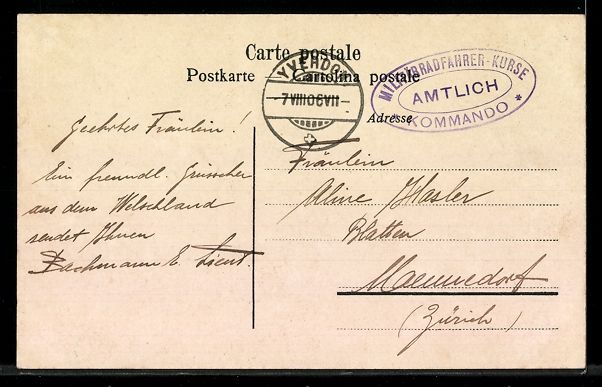 Carte postale
Postkarte — Cartolina postale
YVERDON
-7 VIII 06 VII-
MILITÄRRADFAHRER-KURSE
AMTLICH
* KOMMANDO *
Adresse
Geehrtes Fräulein!
Ein freundl. Grüsschen
aus dem Welschland
sendet Ihnen
Bachmann E. Lieut.
Fräulein
Aline Hasler
Blatten
Maennedorf
(Zürich)